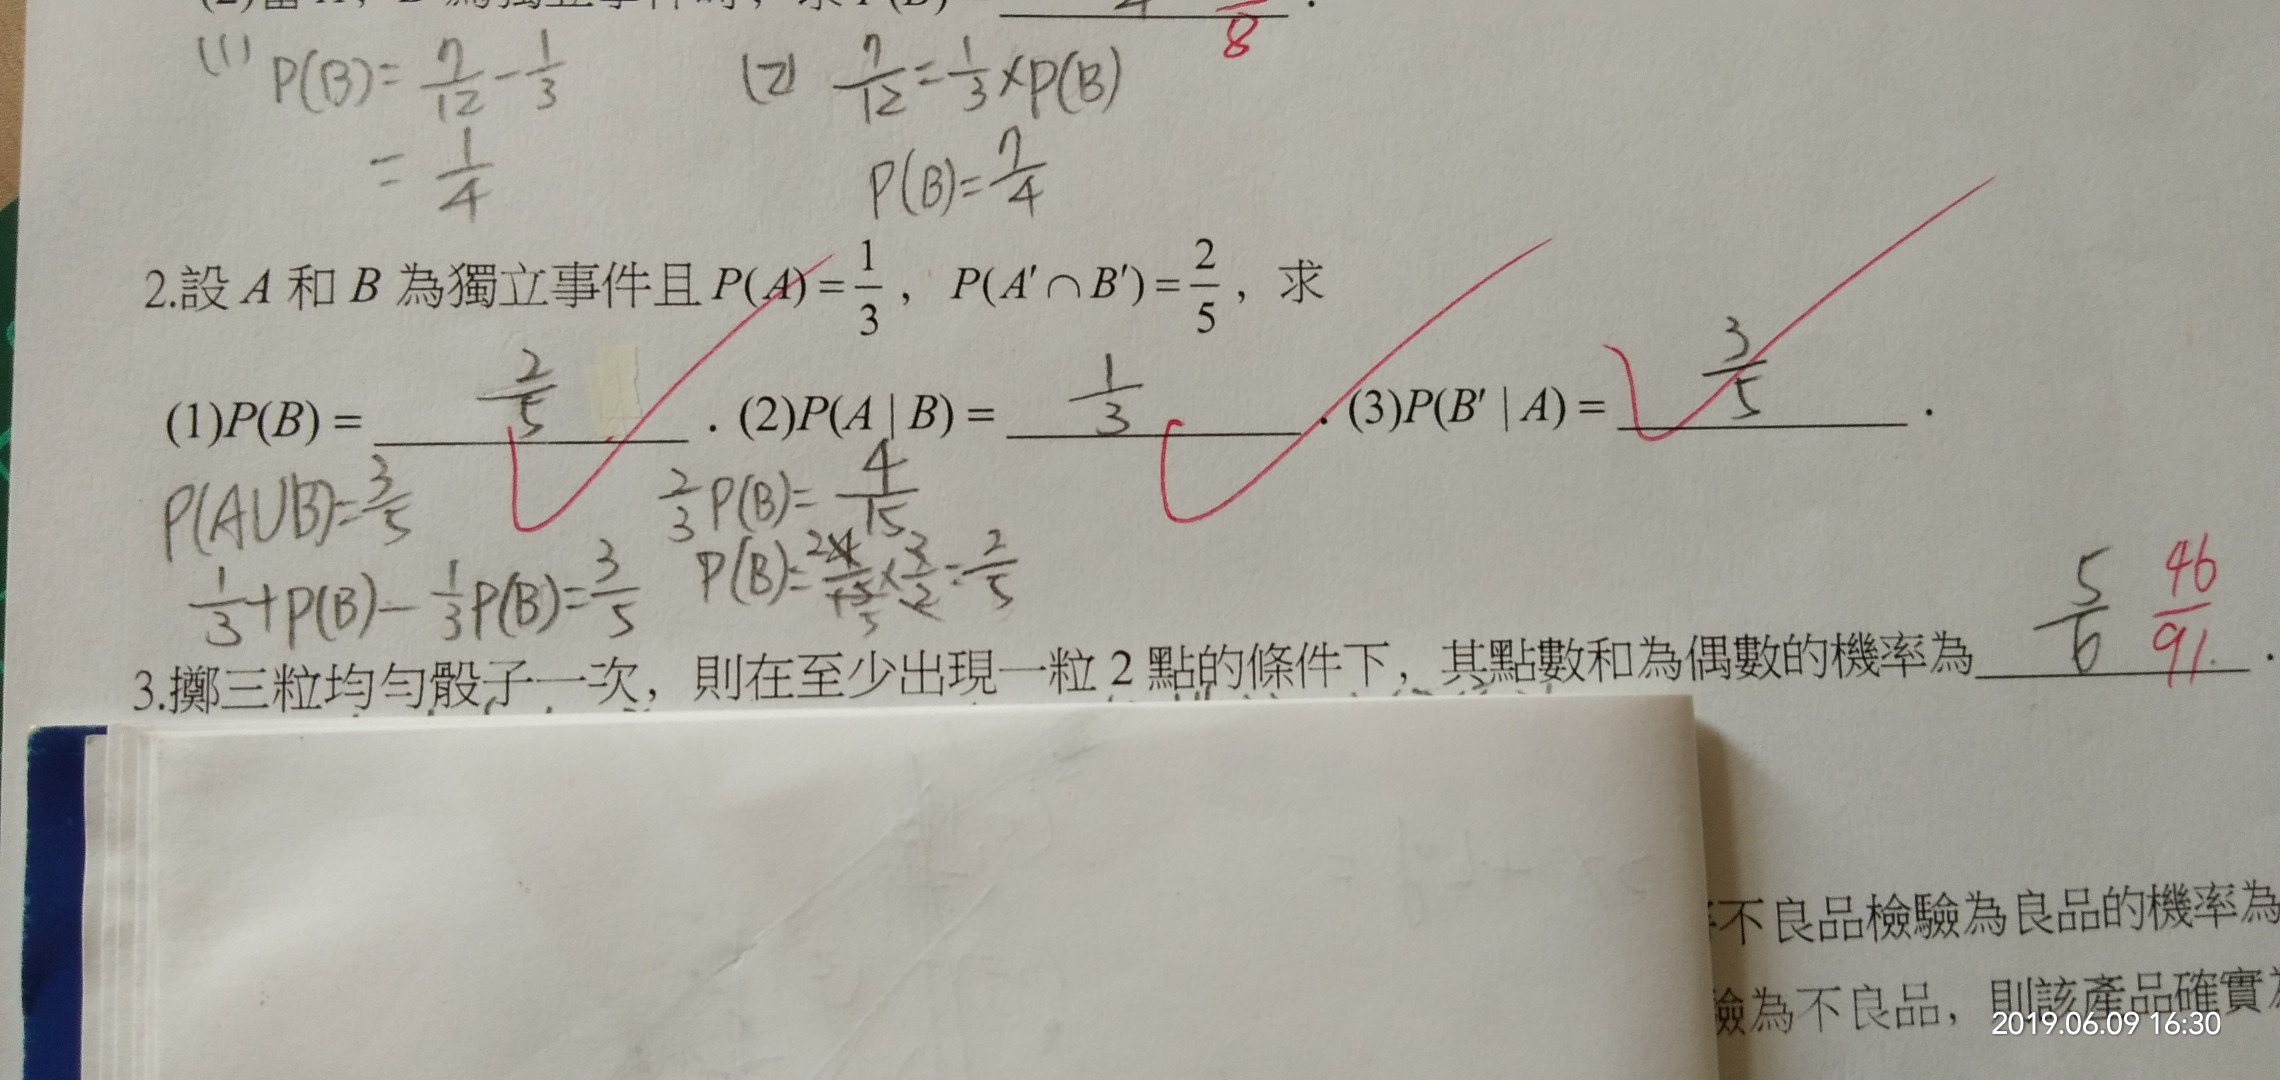 (1) P(B)=7/12-1/3 (2) 7/12=1/3×P(B)
=1/4 P(B)=7/4
8
2.設 A 和 B 為獨立事件且 P(A)=1/3，P(A'∩B')=2/5，求
(1)P(B)= 2/5 . (2)P(A|B)= 1/3 . (3)P(B'|A)= 3/5 .
P(A∪B)=3/5 2/3P(B)=4/15
1/3+P(B)-1/3P(B)=3/5 P(B)=4/15×3/2=2/5
3.擲三粒均勻骰子一次，則在至少出現一粒 2 點的條件下，其點數和為偶數的機率為 5/6 46/91 .
不良品檢驗為良品的機率為
驗為不良品，則該產品確實
2019.06.09 16:30